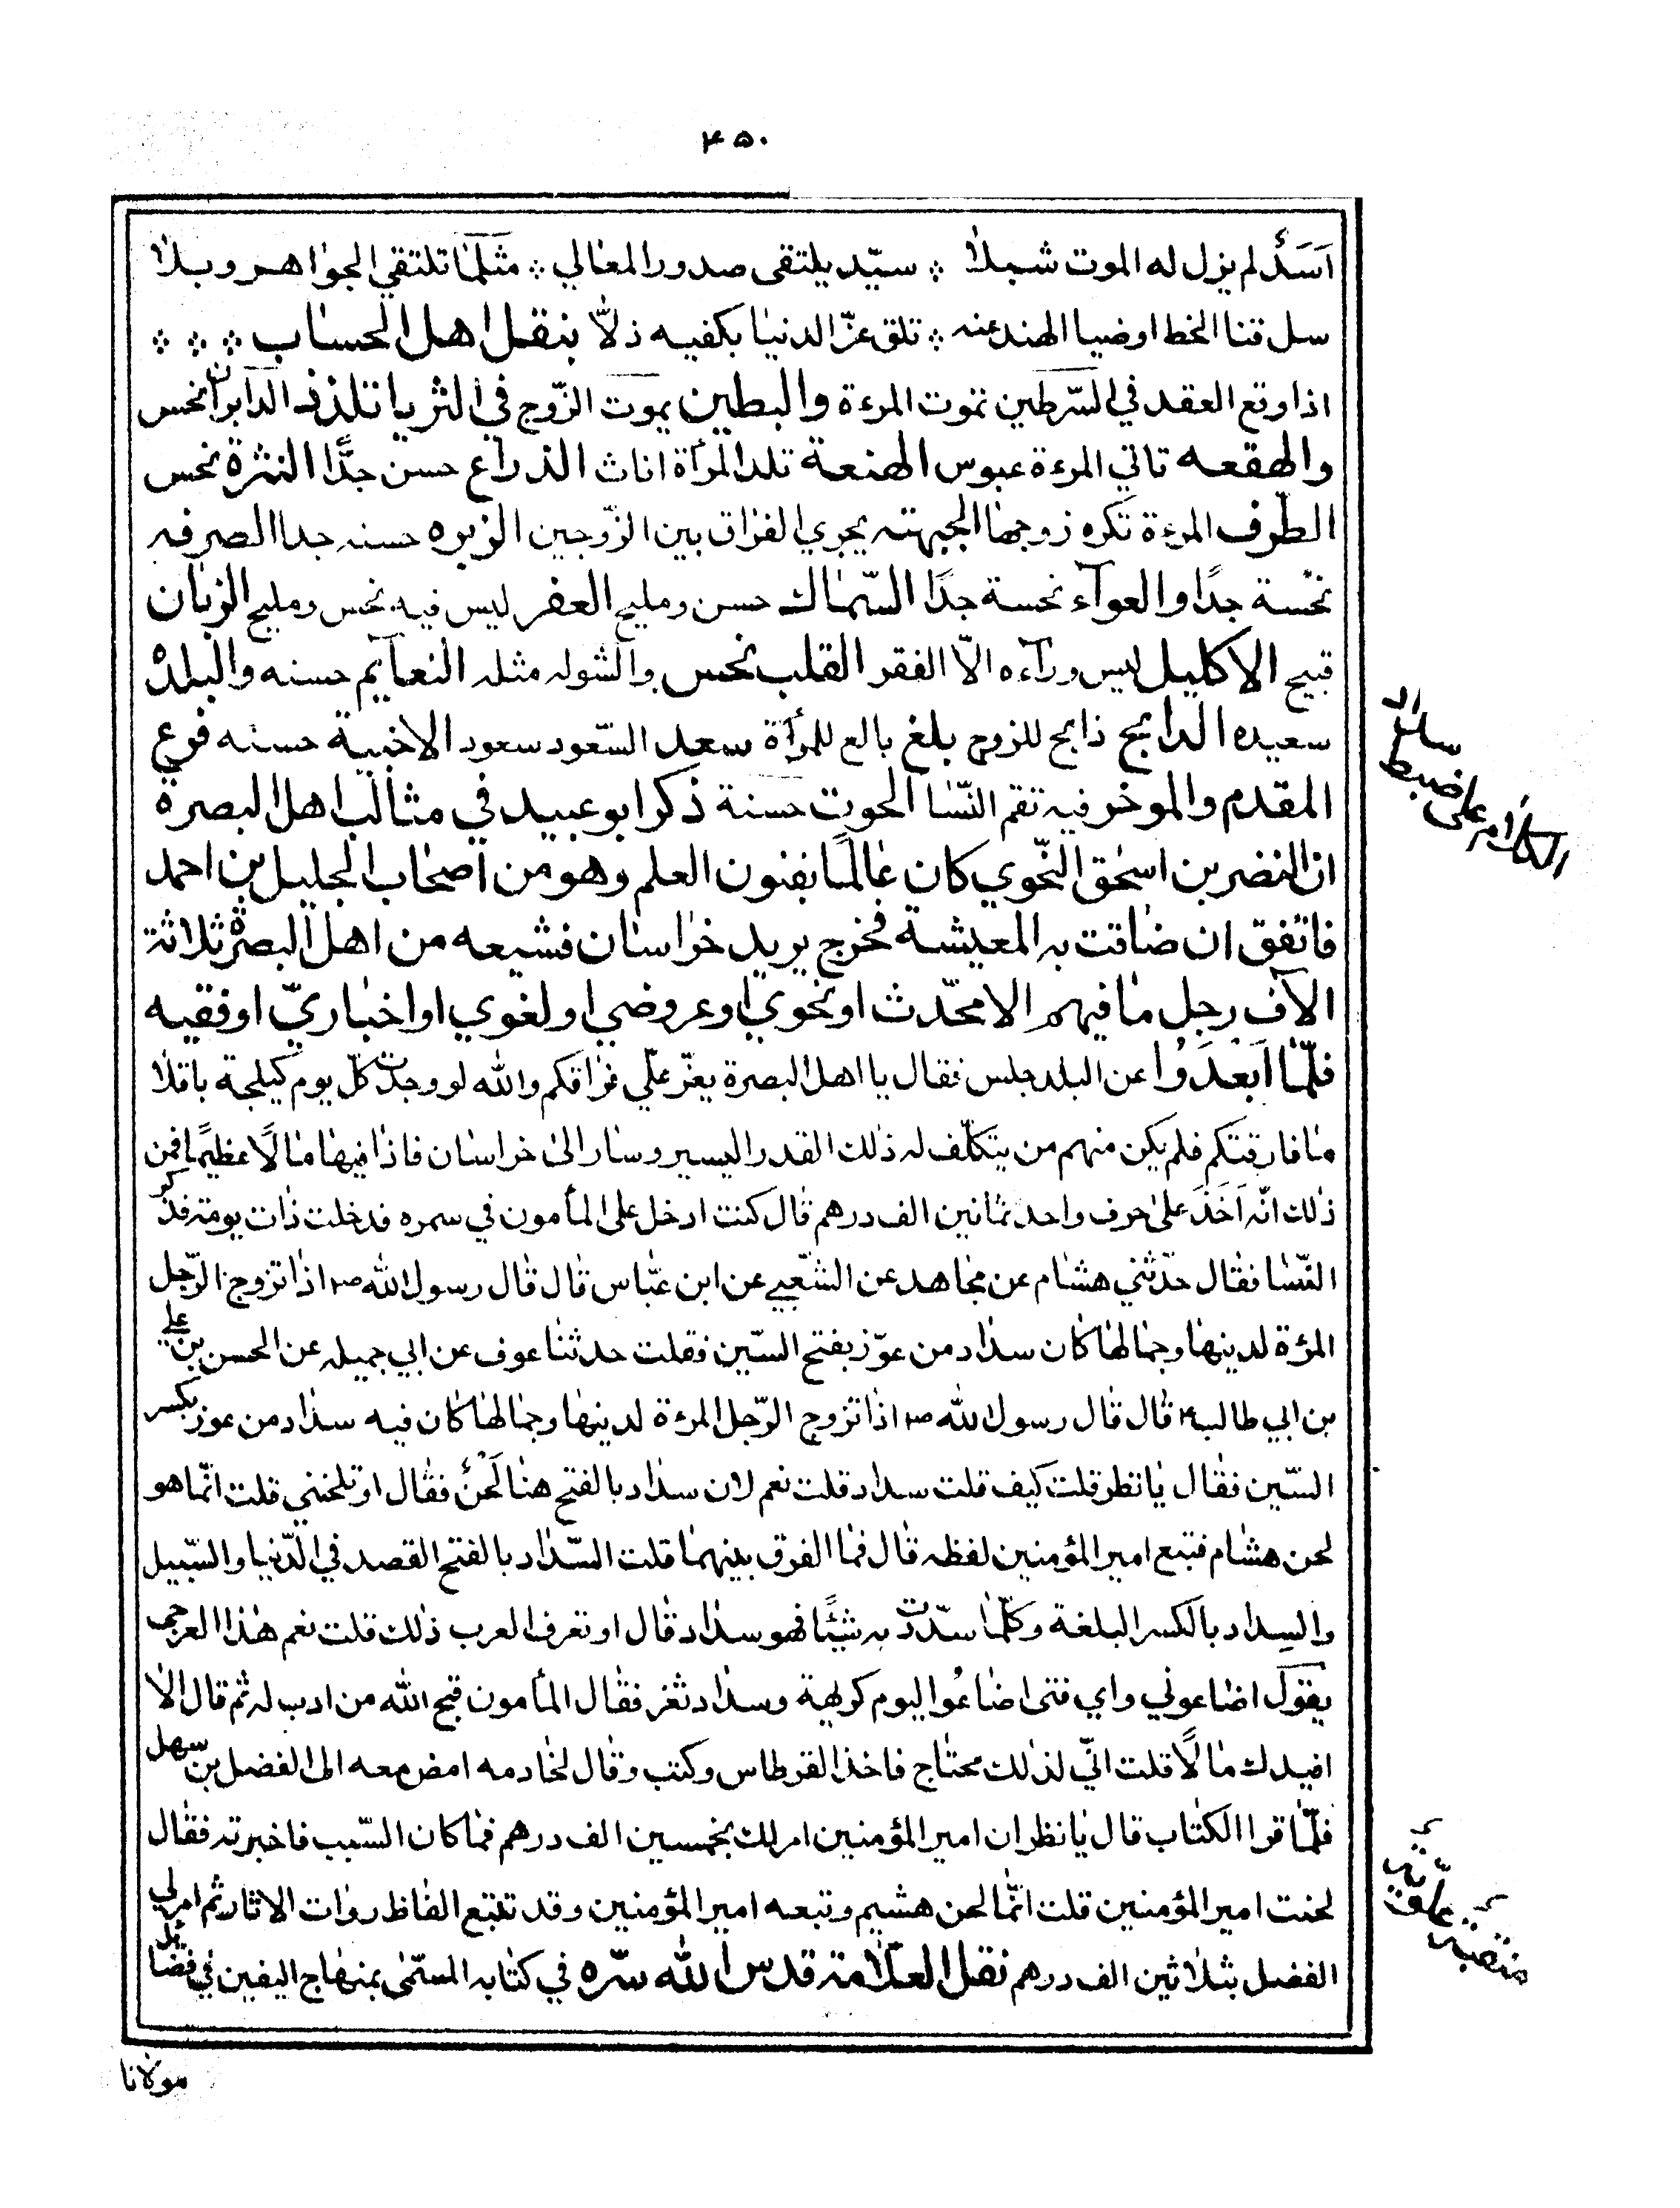 ۴۵۰
اَسَدٌ لم يزل له الموت شبلاً ∴ سيّد يلتقى صدور المعالي ∴ مثلما تلتقي الجواهر وبلا
سل قنا الخط او ضيا الهند عنه ∴ تلق عزّ الدنيا بكفيه ذلّا بنقل اهل الحساب ∴ ∴ ∴
اذا وقع العقد في السّرطين تموت المرءة والبطين يموت الزّوج في الثريا تلذذ الدابران نحس
والهقعه تاتي المرءة عبوس الهنعة تلد المرأة اناث الذراع حسن جدًّا النثرة نحس
الطرف المرءة تكره زوجها الجبهته يجري الفراق بين الزّوجين الزبره حسنه جدا الصرفه
نحسة جدًا والعوآء نحسة جدًا السّماك حسن ومليح العفر ليس فيه نحس ومليح الزبان
قبيح الاكليل ليس ورآءه الّا الفقر القلب نحس والشوله مثله النعآيم حسنه والبلده
سعيده الدابح ذابح للزوج بلغ بالع للمرأة سعد السّعود سعود الاخبية حسنه فرع
المقدم والموخر فيه تقم النّسا الحوت حسنة ذكر ابو عبيد في مثالب اهل البصرة
ان النضر بن اسحق النّحوي كان عالمًا بفنون العلم وهو من اصحاب الجليل بن احمد
فاتفق ان ضاقت به المعيشة فخرج يريد خراسان فشيعه من اهل البصرة ثلاثة
الآف رجل ما فيهم الا محّدث او نحوي او عروضي او لغوي او اخباريّ او فقيه
فلمّا اَبعَدُوا عن البلد جلس فقال يا اهل البصرة يعزّ علّي فراقكم والله لو وجدت كل يوم كيلجة باقلا
ما فارقتكم فلم يكن منهم من يتكلّف له ذلك القدر اليسير وسار الى خراسان فاذا فيها مالًا عظيمًا فمن
ذلك انّه اَخَذَ على حرف واحد ثمانين الف درهم قال كنت ادخل على المأمون في سمره فدخلت ذات يومته فذكر
النّسا فقال حدّثني هشام عن مجاهد عن الشّعبي عن ابن عبّاس قال قال رسول الله ص اذا تزوج الرّجل
المرؤة لدينها وجمالها كان سداد من عوّز بفتح السّين فقلت حدثنا عوف عن ابي جميله عن الحسن بن علي
بن ابي طالب ع قال قال رسول الله ص اذا تزوج الرّجل المرءة لدينها وجمالها كان فيه سداد من عوز بكسر
السّين فقال يا نظر قلت كيف قلت سداد قلت نعم لان سداد بالفتح هنا لَحْنٌ فقال او تلحنني قلت انّما هو
لحن هشام فتبع امير المؤمنين لفظه قال فما الفرق بينهما قلت السّداد بالفتح القصد في الدّنيا والسّبيل
والسِداد بالكسر البلغة وكلّما سدّدت به شيئًا فهو سداد قال او تعرف العرب ذلك قلت نعم هذا العرجى
يقول اضاعوني واي فتى اضاعُوا ليوم كريهة وسداد ثغر فقال المأمون قبح الله من ادب له ثم قال الا
افيدك مالًا قلت انّي لذلك محتاج فاخذ القرطاس وكتب وقال لخادمه امض معه الى الفضل بن سهل
فلمّا قرا الكتاب قال يا نظر ان امير المؤمنين امر لك بخمسين الف درهم فما كان السّبب فاخبرته فقال
لحنت امير المؤمنين قلت انّما لحن هشيم وتبعه امير المؤمنين وقد تتبع الفاظ روات الاثار ثم امر لي
الفضل بثلاثين الف درهم نقل العلّامة قدس الله سّره في كتابه المسمّى بمنهاج اليقين في فضائل
مولانا
الكلام على ضبط
سداد